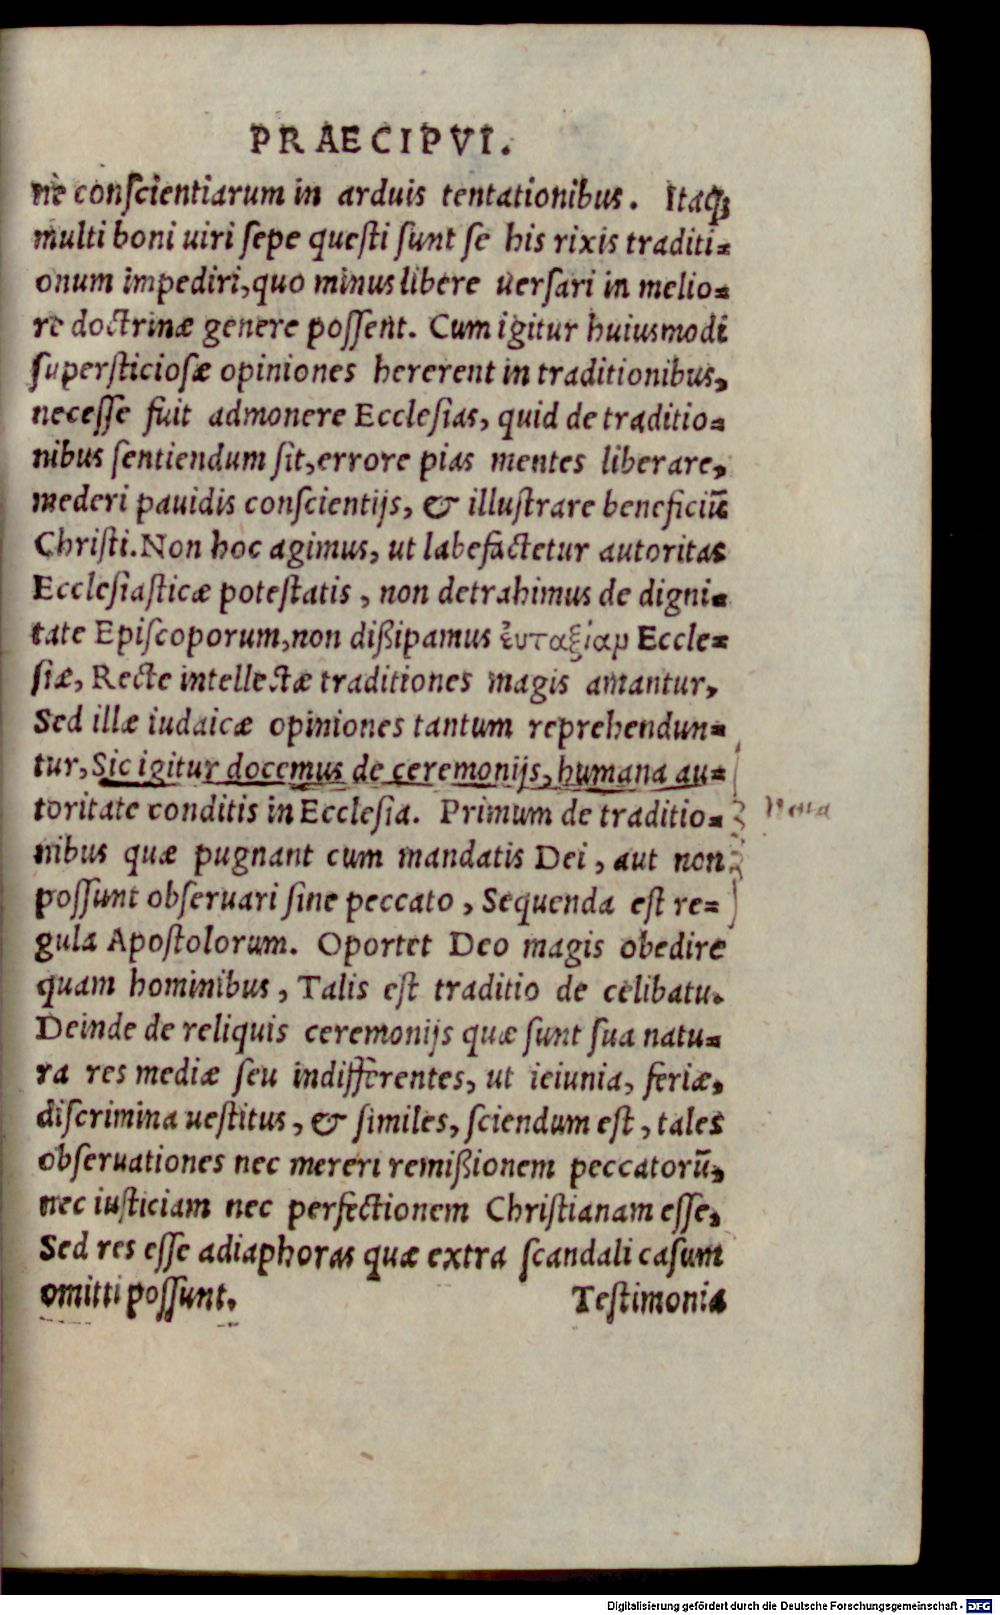 PRAECIPVI.
ne conſcientiarum in arduis tentationibus. Itaqꝫ
multi boni uiri ſepe queſti ſunt ſe his rixis traditi=
onum impediri, quo minus libere uerſari in melio=
re doctrinæ genere poſſent. Cum igitur huiusmodi
ſuperſticioſæ opiniones hererent in traditionibus,
neceſſe fuit admonere Eccleſias, quid de traditio=
nibus ſentiendum ſit, errore pias mentes liberare,
mederi pauidis conſcientijs, & illuſtrare beneficiū
Chriſti. Non hoc agimus, ut labefactetur autoritas
Eccleſiaſticæ poteſtatis, non detrahimus de digni=
tate Epiſcoporum, non dißipamus ἐυταξίαν Eccle=
ſiæ, Recte intellectæ traditiones magis amantur,
Sed illæ iudaicæ opiniones tantum reprehendun=
tur, Sic igitur docemus de ceremonijs, humana au=
toritate conditis in Eccleſia. Primum de traditio=
nibus quæ pugnant cum mandatis Dei, aut non
poſſunt obſeruari ſine peccato, Sequenda eſt re=
gula Apoſtolorum. Oportet Deo magis obedire
quam hominibus, Talis eſt traditio de celibatu.
Deinde de reliquis ceremonijs quæ ſunt ſua natu=
ra res mediæ ſeu indifferentes, ut ieiunia, feriæ,
diſcrimina ueſtitus, & ſimiles, ſciendum eſt, tales
obſeruationes nec mereri remißionem peccatorū,
nec iuſticiam nec perfectionem Chriſtianam eſſe,
Sed res eſſe adiaphoras quæ extra ſcandali caſum
omitti poſſunt. Teſtimonia
Digitalisierung gefördert durch die Deutsche Forschungsgemeinschaft - DFG